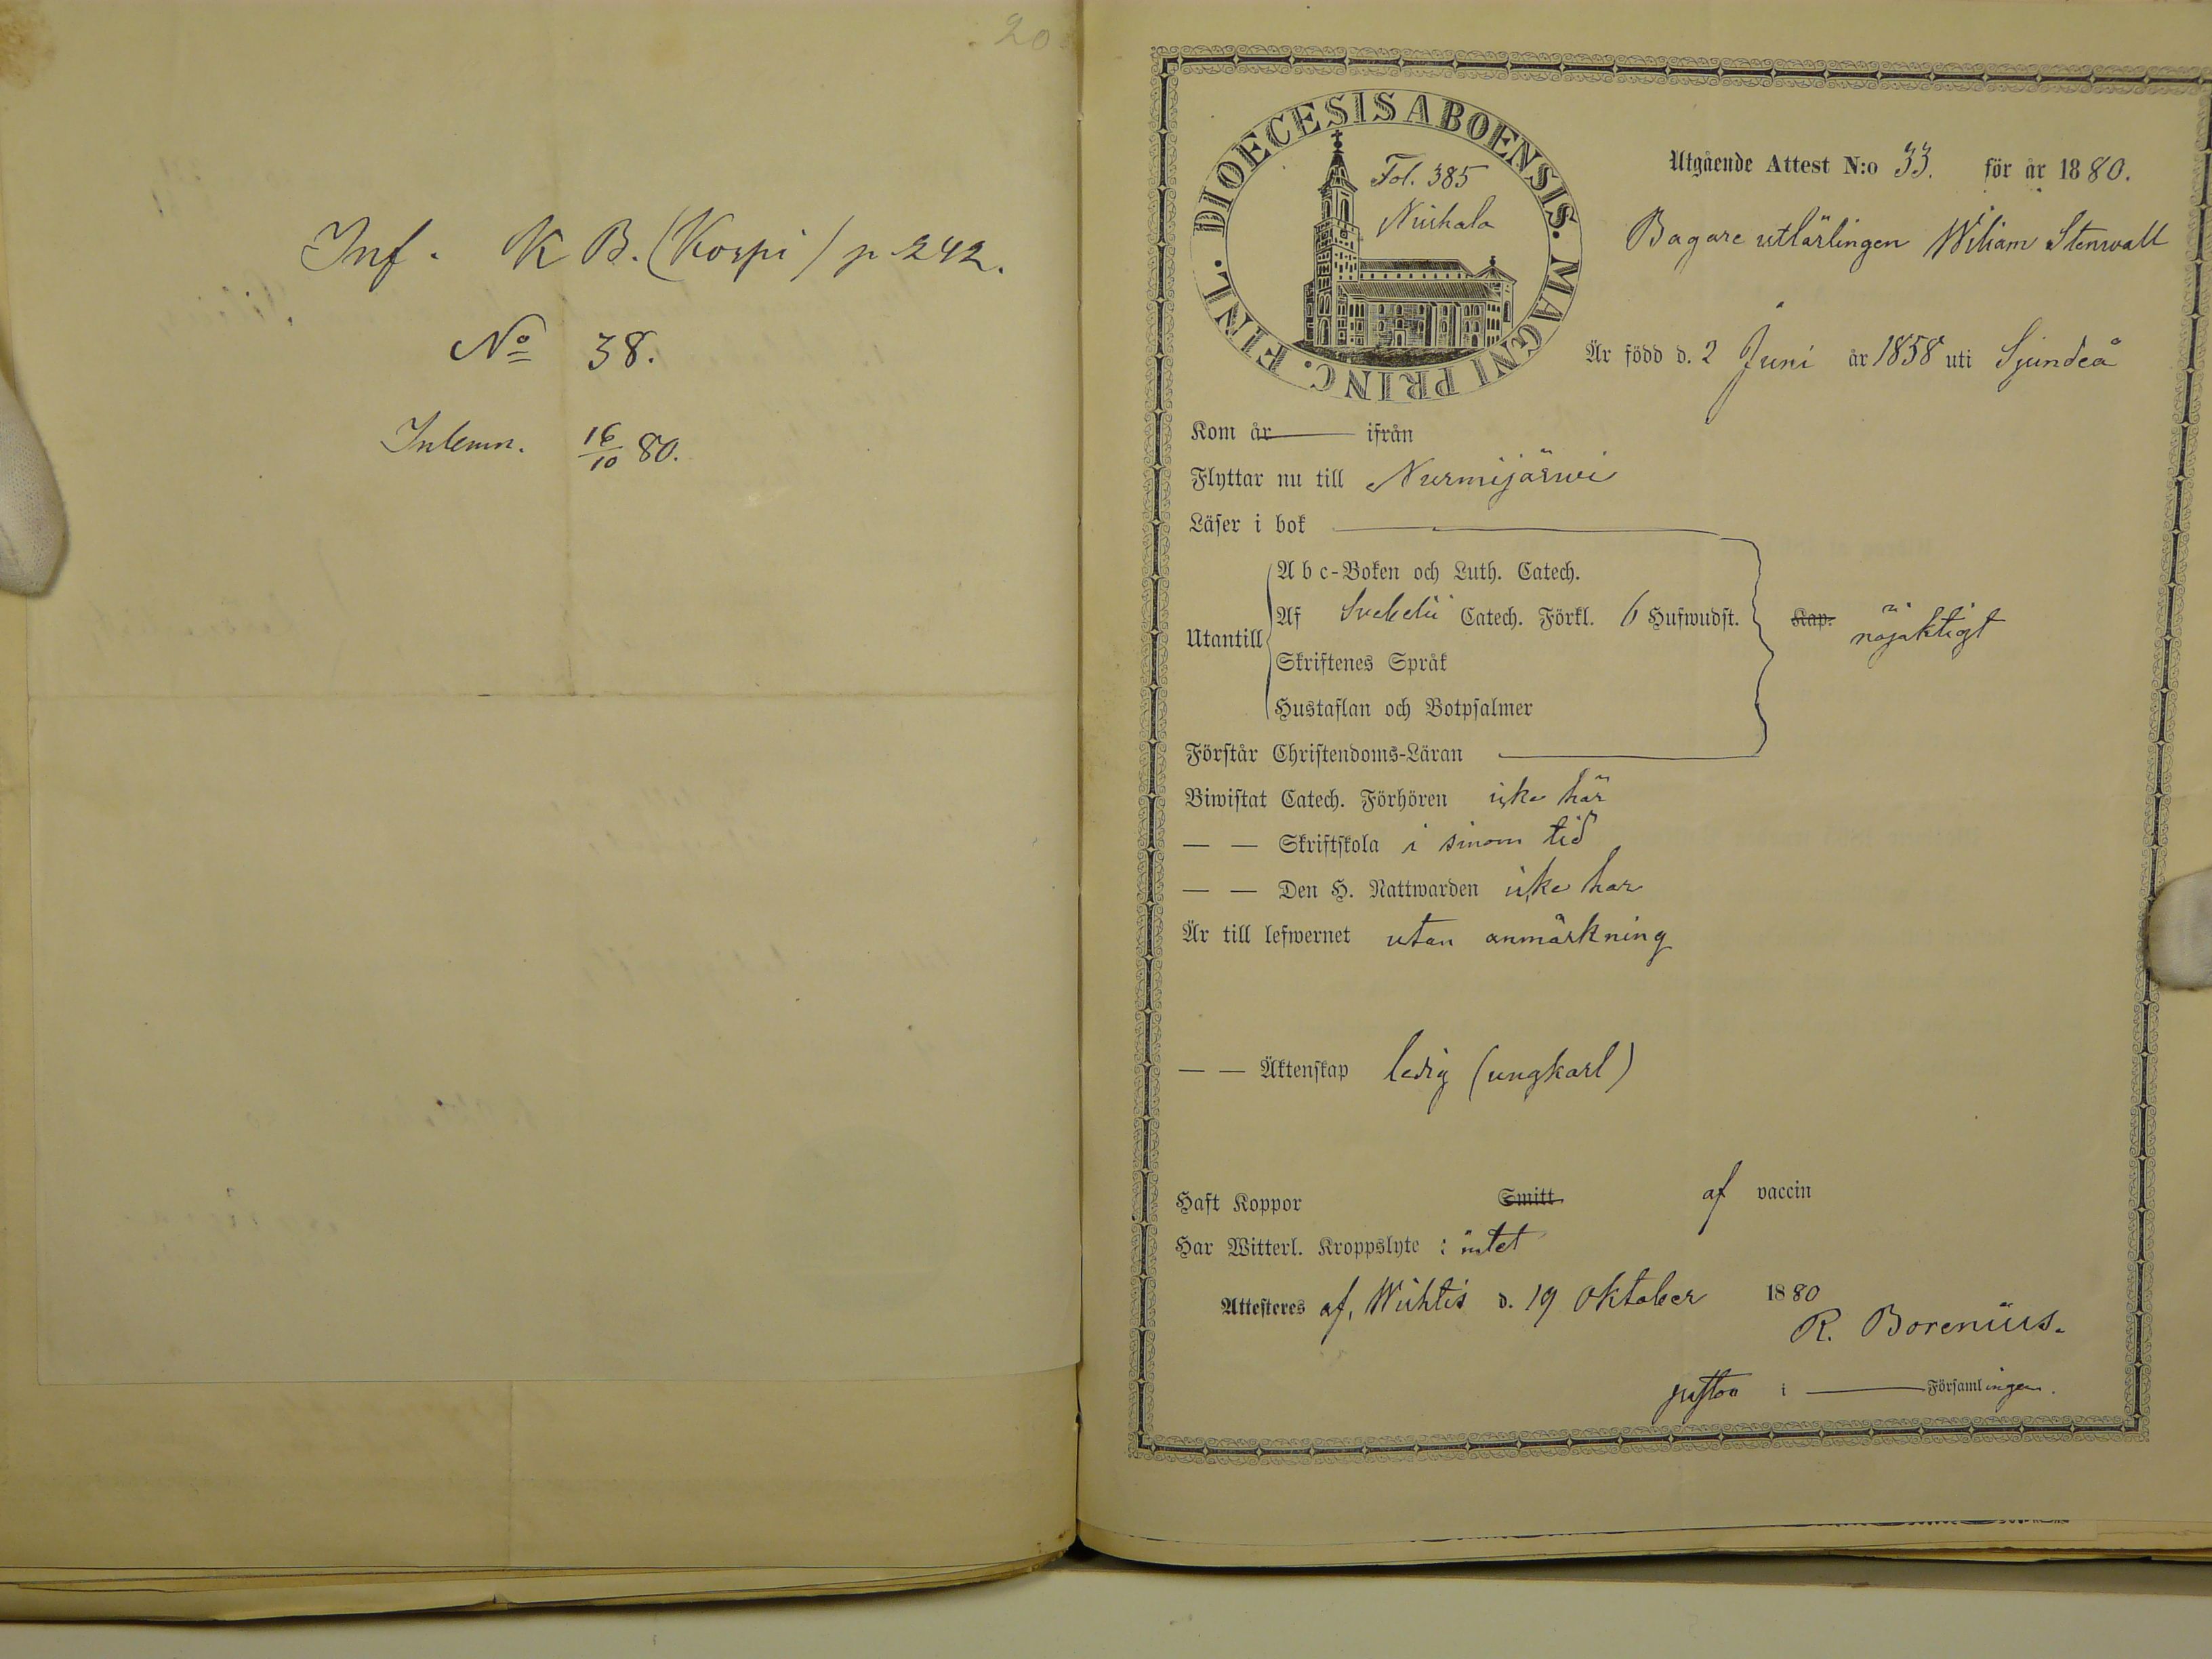 20
Inf. K B. (Korpi) p. 242.
No 38.
Inlemn. 16/10 80.
DIOECESIS ABOENSIS. MAGNI PRINC. FINL.
Fol. 385
Utgående Attest N:o 33. för år 1880.
Bagare utlärlingen Wiliam Stenwall
Är född d. 2 Juni år 1858 uti Sjundeå
Kom år ifrån
Flyttar nu till Nurmijärwi
Läser i bok
Utantill
A b c-Boken och Luth. Catech.
Af Svebelii Catech. Förkl. 6 Hufwudst. Kap. nöjaktigt
Skriftenes Språk
Hustaflan och Botpsalmer
Förstår Christendoms-Läran
Biwistat Catech. Förhören icke här
— — Skriftskola i sinom tid
— — Den H. Nattwarden icke här
Är till lefwernet utan anmärkning
— — Äktenskap ledig (ungkarl)
Haft Koppor Smitt af vaccin
Har Witterl. Kroppslyte : intet
Attesteres af, Wichtis d. 19 Oktober 1880
R. Borenius.
i Församlingen.